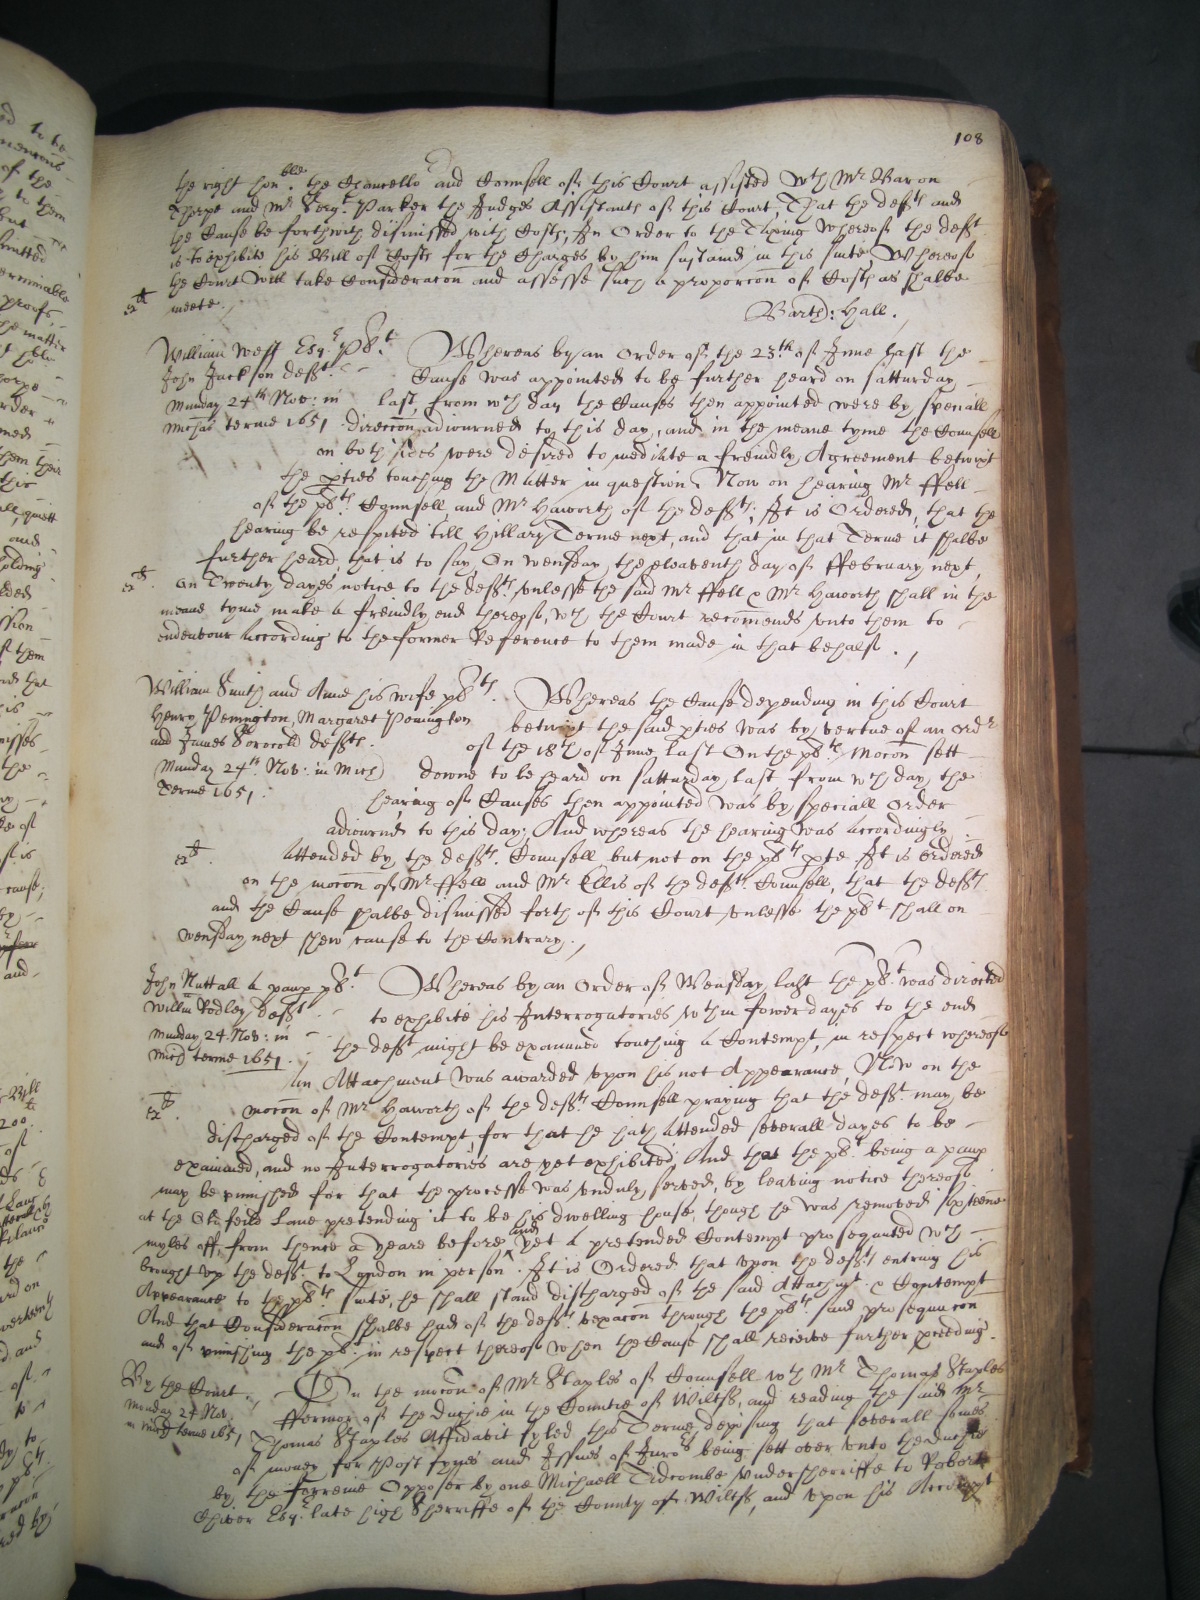 108
the right hon:ble the Chancellor and Counsell of this Court assisted wth Mr Baron
Thorpe and Mr Sergt Parker the Judges Assistants of this Court, That the defts and
the Cause be forthwith dismissed with Costs, In Order to the Taxing whereof the deft
is to exhibite his Bill of Costs for the Charges by him sustained in this suite, Whereof
the Court will take Consideracon and assesse such a proporcon of Costs as shalbe
meete.
Barth: Hall.
William West Esqr plt.
John Jackson deft.
Munday 24th Nov: in
Michas terme 1651
Whereas by an Order of the 23th of June last the
Cause was appointed to be further heard on satturday
last, from wch day the Causes then appointed were by speciall
direccon adiourned to this day, and in the meane tyme the Counsell
on both sides were desired to mediate a freindly Agreement betwixt
the pties touching the Matter in question, Now on hearing Mr ffell
of the plts Counsell and Mr Haworth of the defts; It is Ordered, that the
hearing be respited till Hillary Terme next, and that in that Terme it shalbe
further heard, that is to say, On wensday the eleaventh day of ffebruary next,
on Twenty dayes notice to the deft, unlesse the said Mr ffell & Mr Haworth shall in the
meane tyme make a freindly end thereof, wch the Court recomends unto them to
endeavour According to the former Reference to them made in that behalf.
William Smith and Anne his wife plts.
Henry Penington, Margaret Penington
and James Sorocold defts.
Munday 24th Nov: in Mich
Terme 1651.
Whereas the Cause depending in this Court
betwixt the said pties was by vertue of an Ordr
of the 18th of June last On the plts mocon sett
downe to be heard on satturday last from wch day the
hearing of Causes then appointed was by speciall Order
adiourned to this day; And whereas the hearing was Accordingly
Attended by the defts Counsell, but not on the plts pte It is Ordered
on the mocon of Mr ffell and Mr Ellis of the defts Counsell, that the defts
and the Cause shalbe dismissed forth of this Court unlesse the plt shall on
wensday next shew cause to the Contrary.
John Nuttall a paup plt.
Willm Rodley deft
Munday 24 Nov: in
Mich terme 1651.
Whereas by an Order of Wensday last the plt was directed
to exhibite his Interrogatories wthin fower dayes to the end
the deft might be examined touching a Contempt, in respect whereof
An Attachment was awarded upon his not Appearance, Now on the
mocon of Mr Haworth of the defts Counsell praying that the deft may be
discharged of the Contempt, for that he hath Attended severall dayes to be
examined, and no Interrogatories are yet exhibited And that the plt being a paup
may be punished for that the processe was unduly served, by leaving notice thereof
at the feild Lane pretending it to be his dwelling house, though he was removed sixteene
myles off, from thence a yeare before and yet a pretended Contempt prosequuted wch
brought up the deft to London in person. It is Ordered that upon the defts entring his
Appearance to the plts suite, he shall stand discharged of the said Attachmt & Contempt
And that Consideracon shalbe had of the defts vexacon through the plts said prosequucon
and of punishing the plt in respect thereof when the Cause shall receive further pceeding.
By the Court
Munday 24 Nov.
in Mich terme 1651
On the mocon of Mr Staples of Counsell wth Mr Thomas Staples
ffermor of the duchie in the Countie of Wiltss, and reading the said Mr
Thomas Staples Affidavit fyled this Terme deposing that severall somes
of money for Post fynes and Issues of Jurors being sett over unto the duchie
by the forreine Opposer by one Michaell Tidcombe undersherriffe to Robert
Esqr late high Sherriffe of the County of Wiltss, and upon his Accompt